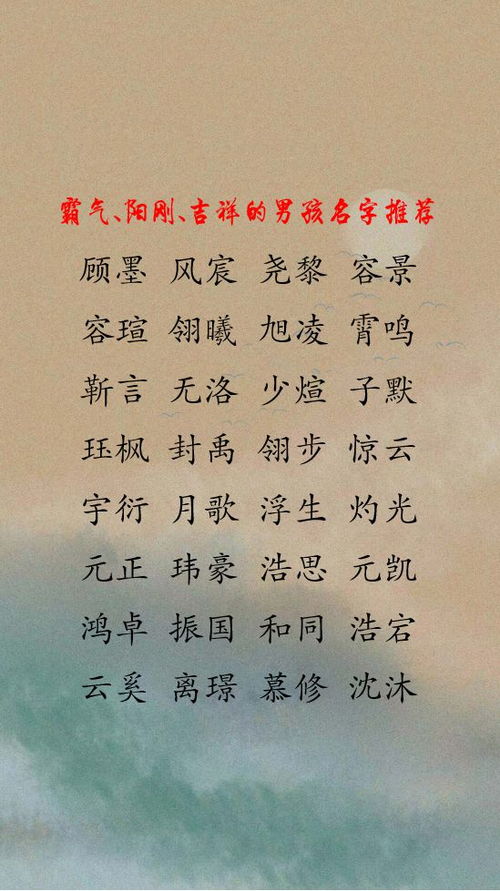 霸气、阳刚、吉祥的男孩名字推荐
顾墨 风宸 尧黎 容景
容瑄 翎曦 旭凌 霄鸣
靳言 无洛 少煊 子默
珏枫 封禹 翎步 惊云
宇衍 月歌 浮生 灼光
元正 玮豪 浩思 元凯
鸿卓 振国 和同 浩宕
云奚 离璟 慕修 沈沐